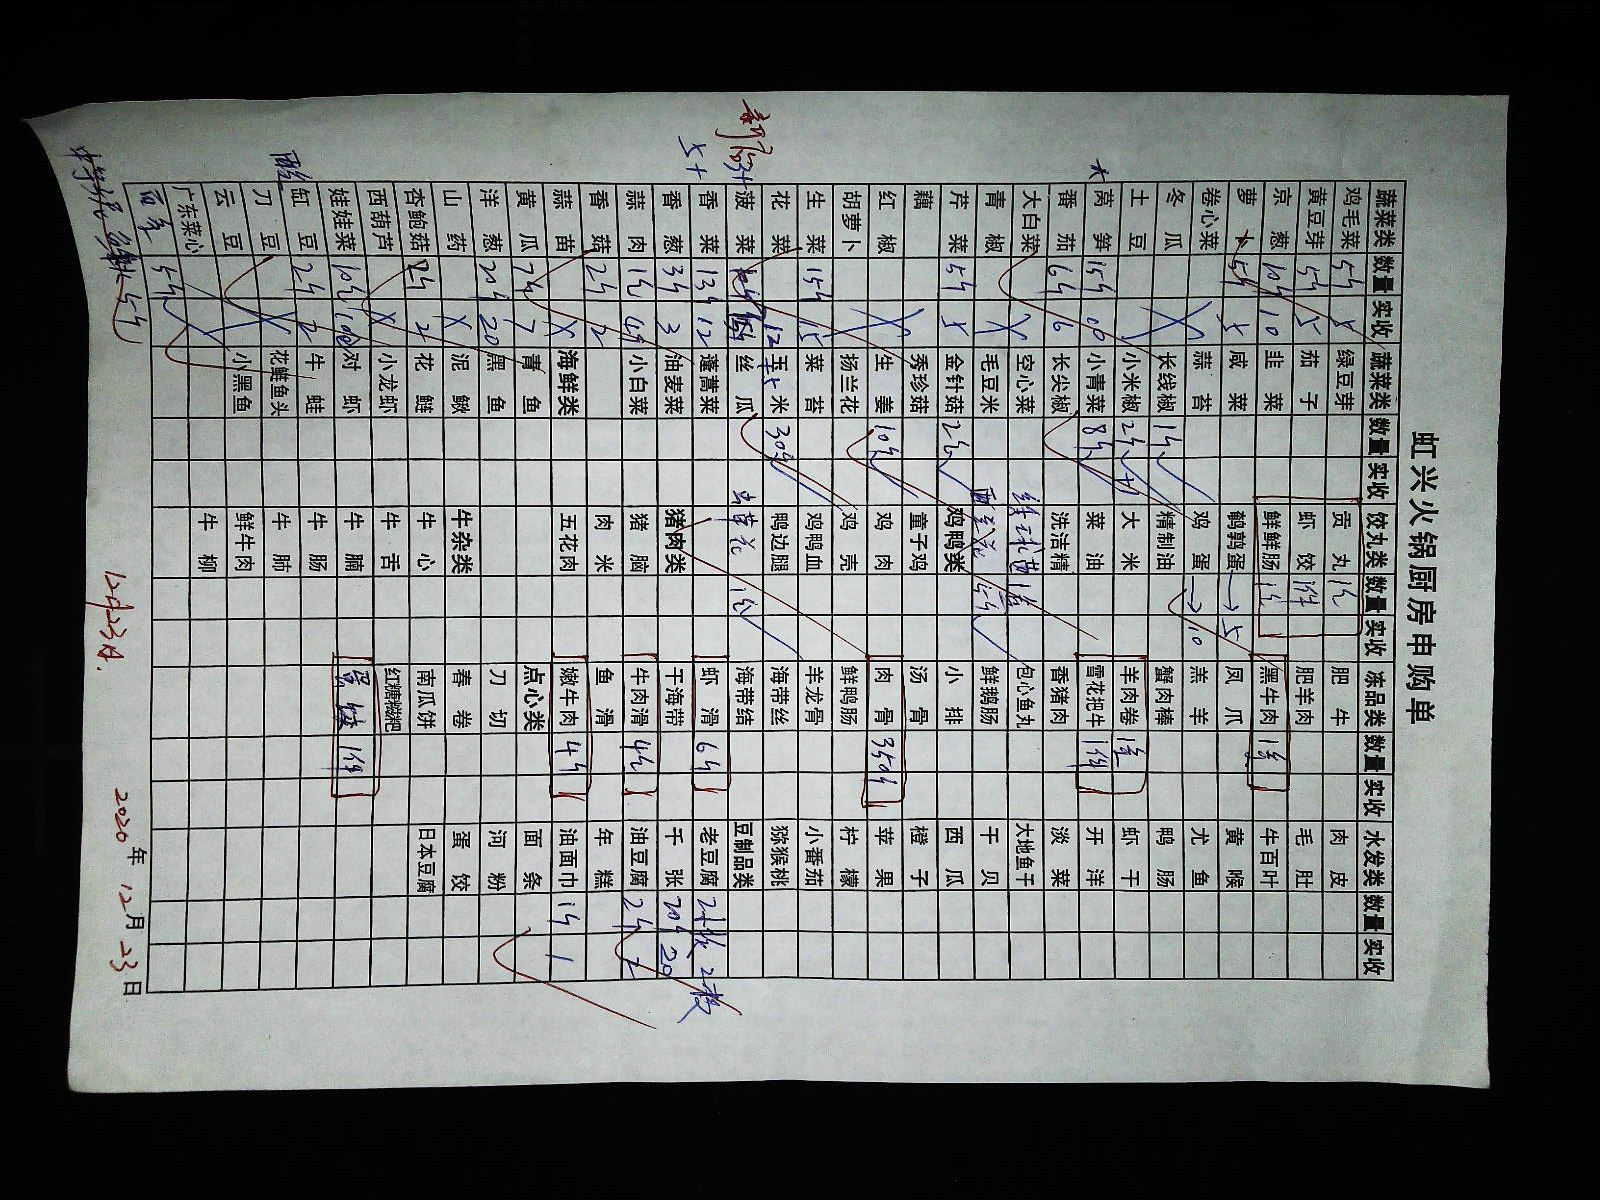 虹兴火锅厨房申购单
蔬菜类 数量 实收 蔬菜类 数量 实收 饺丸类 数量 实收 冻品类 数量 实收 水发类 数量 实收
鸡毛菜 5斤 5 绿豆芽 贡丸 1包 肥牛 肉皮
黄豆芽 5斤 5 茄子 虾饺 1件 肥羊肉 毛肚
京葱 10斤 10 韭菜 鲜鲜肠 1包 黑牛肉 1条 牛百叶
萝卜 5斤 5 咸菜 鹌鹑蛋 →5 凤爪 黄喉
卷心菜 蒜苔 鸡蛋 →10 羔羊 尤鱼
冬瓜 长线椒 1斤 精制油 蟹肉棒 鸭肠
土豆 小米椒 2斤 大米 羊肉卷 1条 虾干
莴笋 15斤 10 小青菜 8斤 菜油 雪花把牛 1件 开洋
番茄 6斤 6 长尖椒 洗洁精 香猪肉 淡菜
大白菜 空心菜 包心鱼丸 大地鱼干
青椒 毛豆米 西兰花 5斤 鲜鹅肠 干贝
芹菜 5斤 5 金针菇 2包 鸡鸭类 小排 西瓜
藕 秀珍菇 童子鸡 汤骨 橙子
红椒 生姜 10斤 鸡肉 肉骨 350斤 苹果
胡萝卜 扬兰花 鸡壳 鲜鸭肠 柠檬
生菜 15斤 15 菜苔 鸡鸭血 羊龙骨 小番茄
花菜 12 玉米 30斤 鸭边腿 海带丝 猕猴桃
菠菜 丝瓜 1包 海带结 豆制品类
香菜 13斤 12 蓬蒿菜 虾滑 6斤 老豆腐 2板 2板
香葱 3斤 3 油麦菜 猪肉类 干海带 千张 20斤 20
蒜肉 1包 4斤 小白菜 猪脑 牛肉滑 4包 油豆腐 2斤 2
香菇 2斤 2 肉米 鱼滑 年糕
蒜苗 海鲜类 五花肉 嫩牛肉 4斤 油面巾 1斤 1
黄瓜 7斤 7 青鱼 点心类 面条
洋葱 20斤 20 黑鱼 刀切 河粉
山药 泥鳅 牛杂类 春卷 蛋饺
杏鲍菇 2斤 2 花鲢 牛心 南瓜饼 日本豆腐
西葫芦 小龙虾 牛舌 红糖糍粑
娃娃菜 10包 10 对虾 牛腩 蛋饺 1件
豇豆 2斤 2 牛蛙 牛肠
刀豆 花鲢鱼头 牛肺
云豆 小黑鱼 鲜牛肉
广东菜心 牛柳
5斤
12月23日.
2020年12月23日